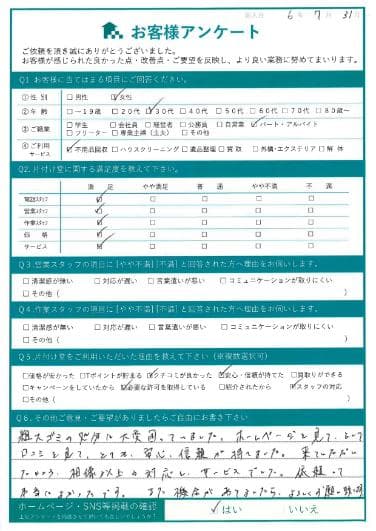 記入日 6年 7月 31日
お客様アンケート
ご依頼を頂き誠にありがとうございました。
お客様が感じられた良かった点・改善点・ご要望を反映し、より良い業務に努めてまいります。
Q1 お客様に当てはまる項目にご回答ください。
①性 別 □男性 □女性
②年 齢 □～19歳 □20代 □30代 □40代 □50代 □60代 □70代 □80歳～
③ご職業 □学生 □会社員 □経営者 □公務員 □自営業 □パート・アルバイト
□フリーター □専業主婦(主夫) □その他
④ご利用サービス □不用品回収 □ハウスクリーニング □遺品整理 □買取 □外構・エクステリア □解体
Q2. 片付け堂に関する満足度を教えて下さい。
満 足 やや満足 普 通 やや不満 不 満
電話スタッフ □ □ □ □ □
営業スタッフ □ □ □ □ □
作業スタッフ □ □ □ □ □
価 格 □ □ □ □ □
サービス □ □ □ □ □
Q3.営業スタッフの項目に[やや不満][不満]と回答された方へ理由をお伺いします。
□清潔感が無い □対応が遅い □言葉遣いが悪い □コミュニケーションが取りにくい
□その他( )
Q4.作業スタッフの項目に[やや不満][不満]と回答された方へ理由をお伺いします。
□清潔感が無い □対応が遅い □言葉遣いが悪い □コミュニケーションが取りにくい
□その他( )
Q5.片付け堂をご利用いただいた理由を教えて下さい(※複数選択可)
□価格が安かった □Tポイントが貯まる □クチコミが良かった □安心・信頼が持てた □買取りができる
□キャンペーンをしていたから □必要な許可を取得している □紹介されたから □スタッフの対応
□その他( )
Q6.その他ご意見・ご要望がありましたらご自由にお書き下さい
粗大ゴミの処分に大変困っていました。ホームページを見て、そして
口コミを見て、とても、安心、信頼が持てました。来ていただい
たところ、想像以上の対応と、サービスでした。依頼して
本当によかったです。また機会がありましたら、よろしくお願い致します
ホームページ・SNS等掲載の確認 はい いいえ